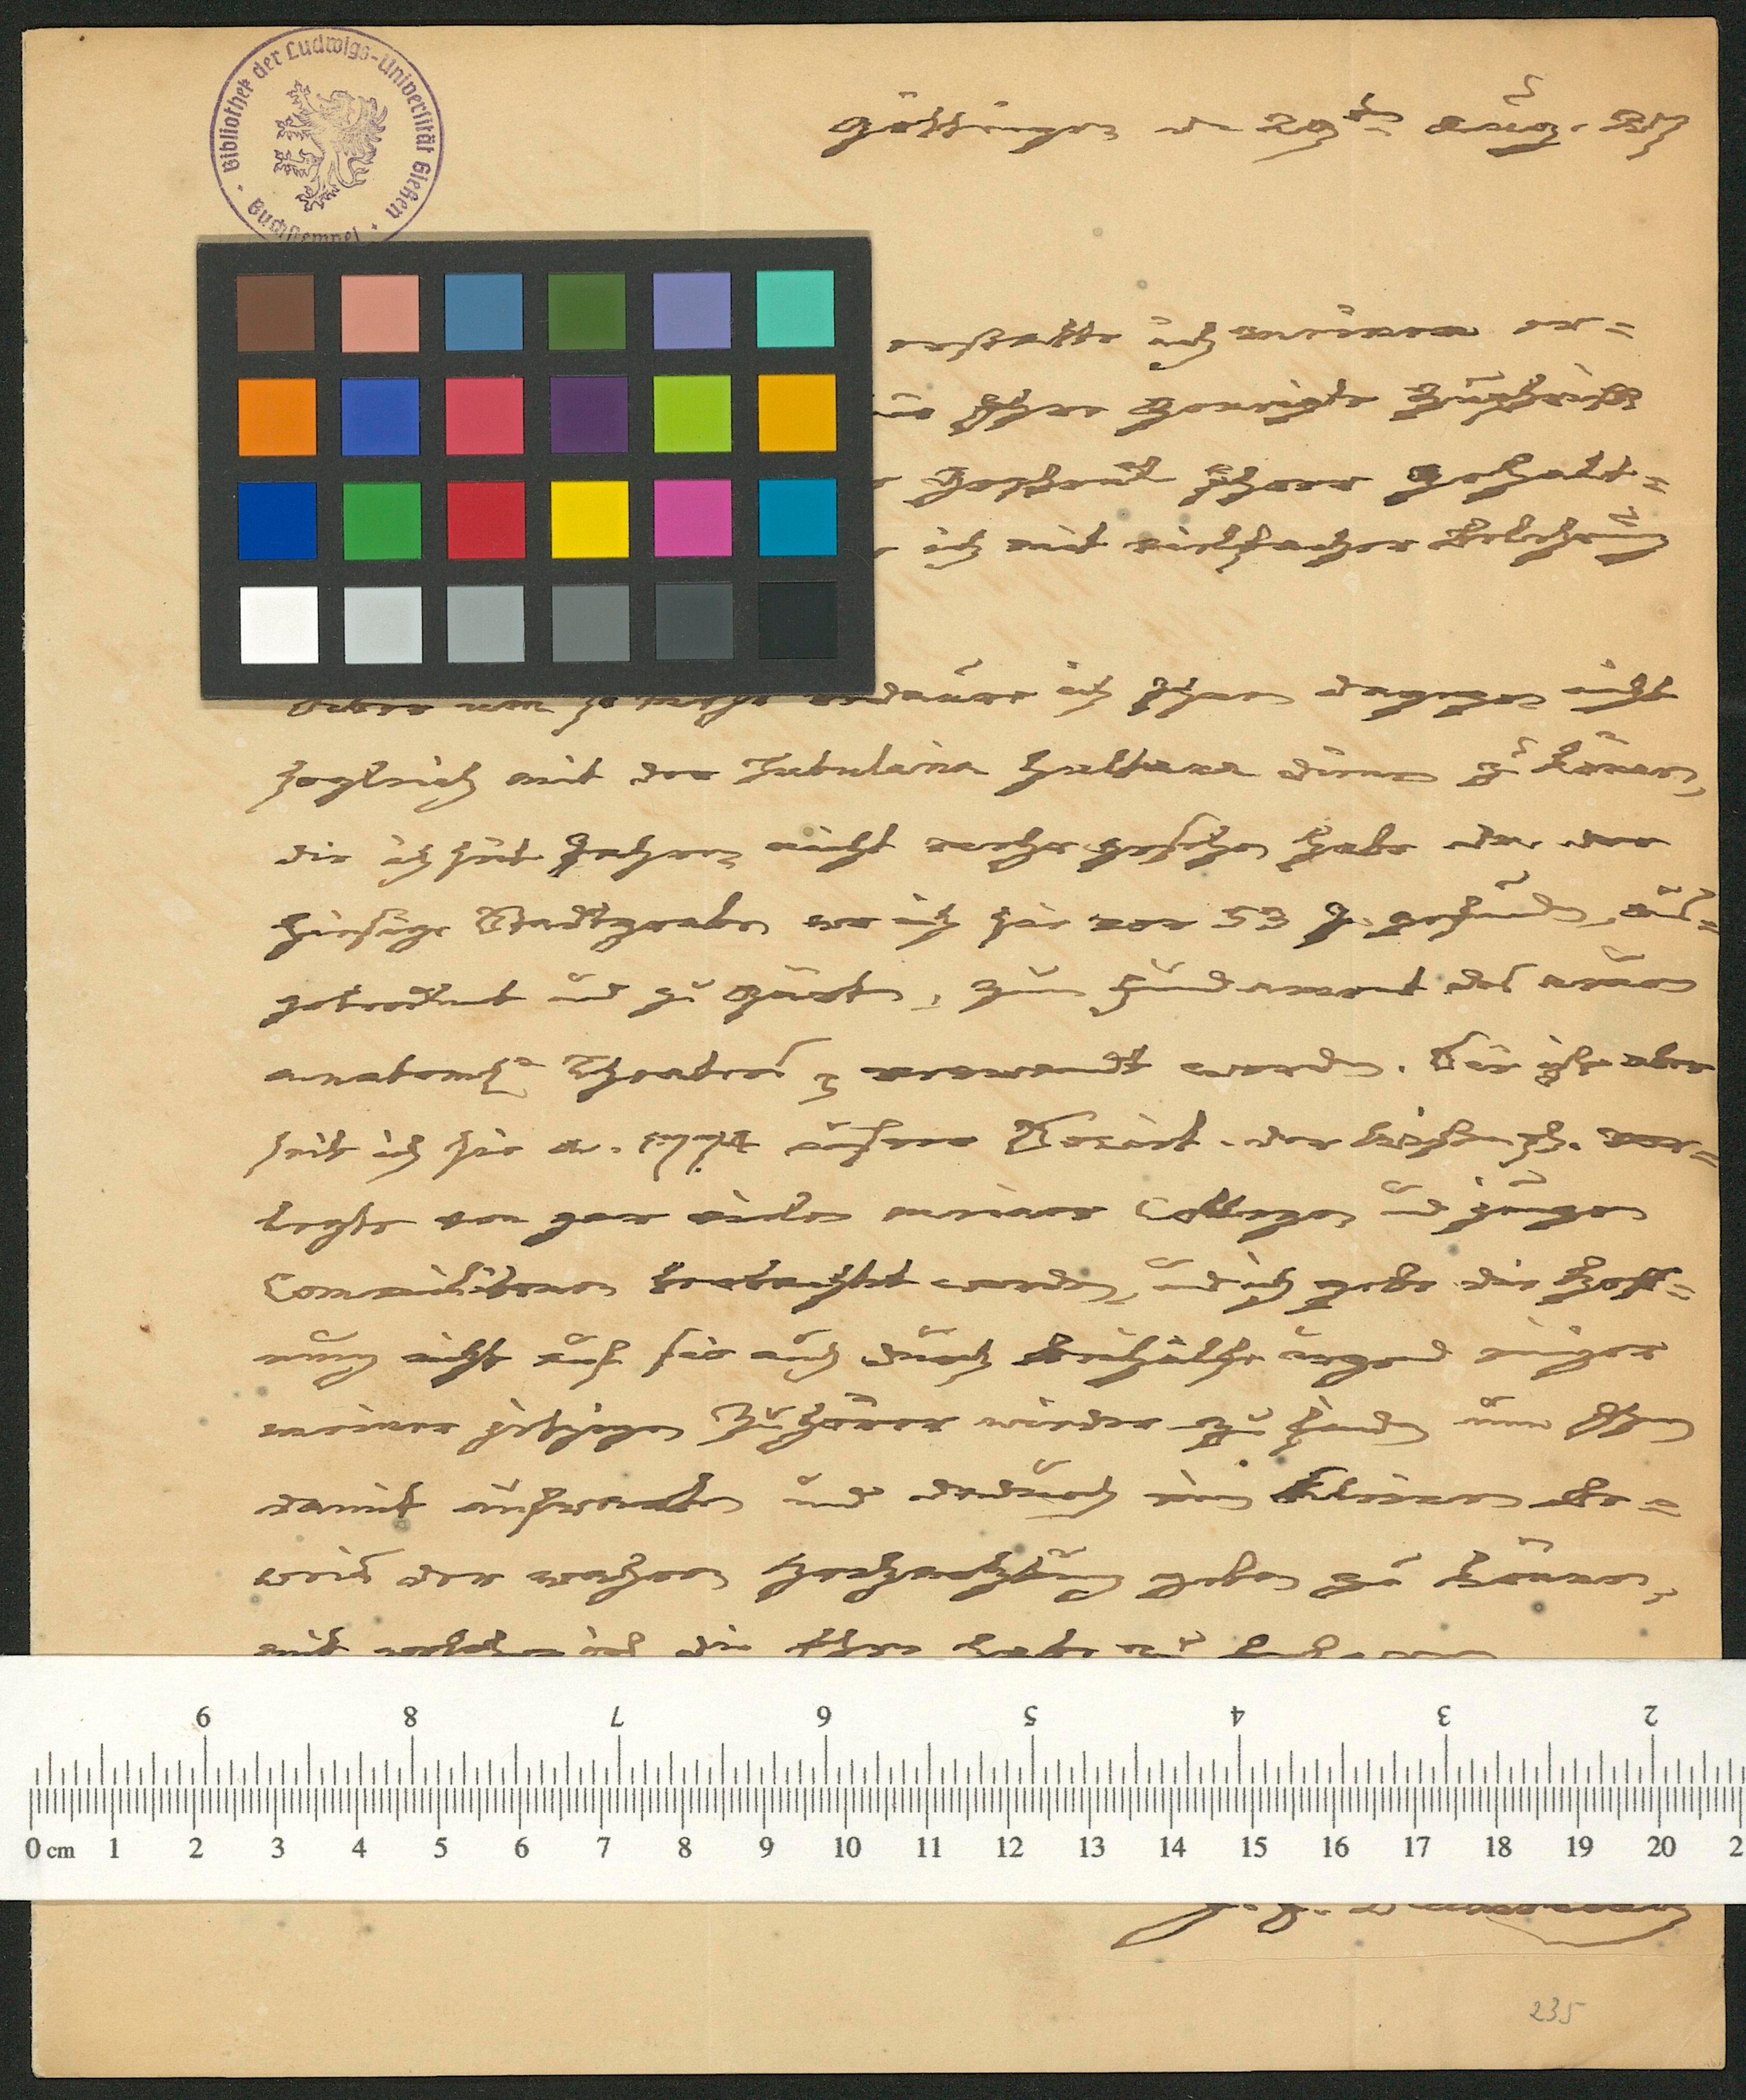 Bibliothek der Ludwigs-Universität Gießen
Buchstempel
Göttingen d. 29ten Aug. 27
erstatte ich meinen er=
Ihre geneigte Zuschrift
Geschenk Ihrer gehalt=
ich mit vielfacher Belehrung
um so mehr bedaure ich Ihnen dagegen nicht
sogleich mit der Tubularia Sultana dienen zu können,
die ich seit Jahren nicht mehr gesehen habe da der
hiesige Stadtgraben wo ich sie vor 53 J. gefunden, aus=
getrocknet und zu Gärten, zum Fundament des neuen
anatomschn Theaters verwandt worden. Sie ist aber
seit ich sie a. 1774 unsrer Societ. der Wissensch. vor=
legte von gar vielen meiner Collegen und jungen
Commilitonen beobachtet worden, und ich gebe die Hoff=
nung nicht auf sie auch durch Beihülfe irgend einiger
meiner jetzigen Zuhörer wieder zu finden um Ihnen
damit aufwarten und dadurch einen kleinen Be=
weis der wahren Hochachtung geben zu können,
mit welcher ich die Ehre habe zu
235
9 8 7 6 5 4 3 2
0 cm 1 2 3 4 5 6 7 8 9 10 11 12 13 14 15 16 17 18 19 20 2